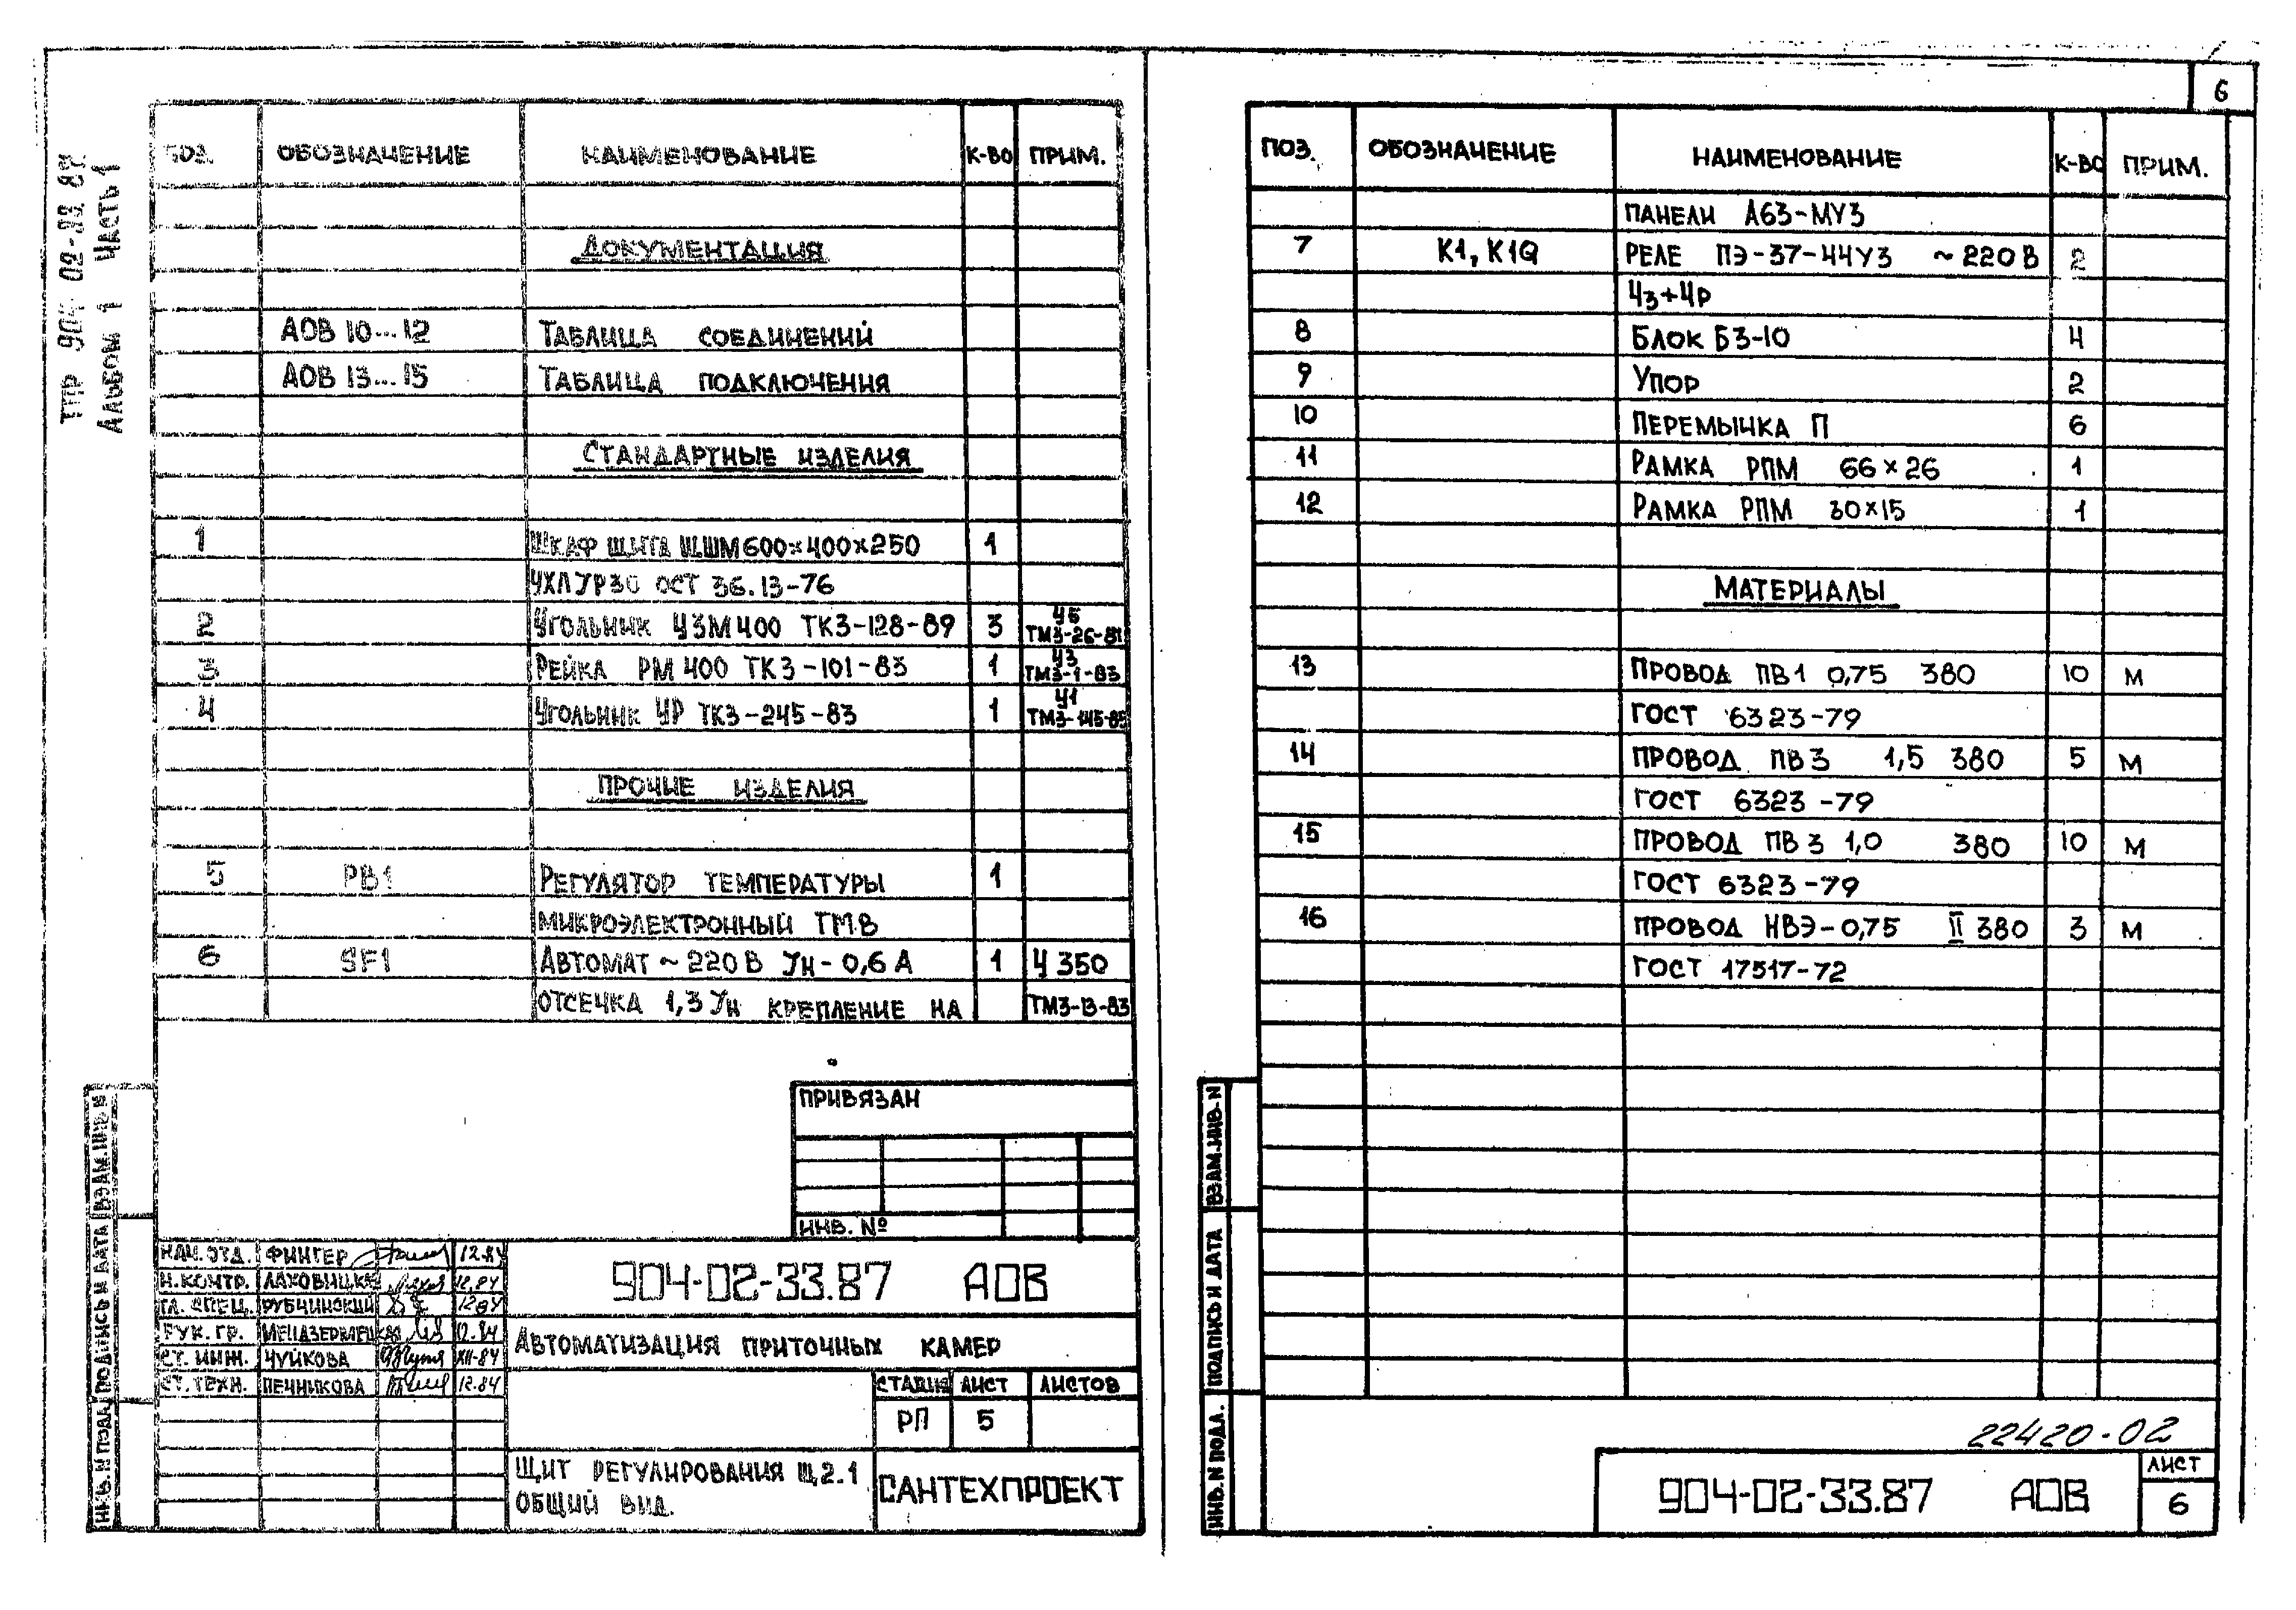 ТПР 904-02-33.87
Альбом 1 Часть 1
ПОЗ. ОБОЗНАЧЕНИЕ НАИМЕНОВАНИЕ К-ВО ПРИМ.
ДОКУМЕНТАЦИЯ
АОВ 10...12 ТАБЛИЦА СОЕДИНЕНИЙ
АОВ 13...15 ТАБЛИЦА ПОДКЛЮЧЕНИЯ
СТАНДАРТНЫЕ ИЗДЕЛИЯ
1 ШКАФ ЩИТА ЩШМ 600×400×250 1
УХЛ УР30 ОСТ 36.13-76
2 УГОЛЬНИК УЗМ400 ТК3-128-89 3 У5 ТМ3-26-81
3 РЕЙКА РМ 400 ТК3-101-83 1 У3 ТМ3-1-83
4 УГОЛЬНИК УР ТК3-245-83 1 У1 ТМ3-145-85
ПРОЧИЕ ИЗДЕЛИЯ
5 РВ1 РЕГУЛЯТОР ТЕМПЕРАТУРЫ 1
МИКРОЭЛЕКТРОННЫЙ ТМ8
6 SF1 АВТОМАТ ~ 220 В Ун - 0,6 А 1 Ч 350
ОТСЕЧКА 1,3 Ун КРЕПЛЕНИЕ НА ТМ3-13-83
ПРИВЯЗАН
ИНВ. №
НАЧ. ОТД. ФИНГЕР 12.84
Н.КОНТР. ЛАХОВИЦКАЯ 12.84
ГЛ. СПЕЦ. РУБЧИНСКИЙ 12 84
РУК. ГР. 12.84
СТ. ИНЖ. ЧУЙКОВА XII-84
СТ. ТЕХН. ПЕЧНИКОВА 12.84
904-02-33.87 АОВ
АВТОМАТИЗАЦИЯ ПРИТОЧНЫХ КАМЕР
СТАДИЯ ЛИСТ ЛИСТОВ
РП 5
ЩИТ РЕГУЛИРОВАНИЯ Щ2.1
ОБЩИЙ ВИД.
САНТЕХПРОЕКТ
ИНВ. N ПОДЛ. ПОДПИСЬ И ДАТА ВЗАМ. ИНВ. N
6
ПОЗ. ОБОЗНАЧЕНИЕ НАИМЕНОВАНИЕ К-ВО ПРИМ.
ПАНЕЛИ А63-МУ3
7 К1, К1Q РЕЛЕ ПЭ-37-44У3 ~ 220 В 2
4з+4р
8 БЛОК БЗ-10 4
9 УПОР 2
10 ПЕРЕМЫЧКА П 6
11 РАМКА РПМ 66×26 1
12 РАМКА РПМ 30×15 1
МАТЕРИАЛЫ
13 ПРОВОД ПВ1 0,75 380 10 М
ГОСТ 6323-79
14 ПРОВОД ПВ3 1,5 380 5 М
ГОСТ 6323-79
15 ПРОВОД ПВ3 1,0 380 10 М
ГОСТ 6323-79
16 ПРОВОД НВЭ-0,75 II 380 3 М
ГОСТ 17517-72
ИНВ. N ПОДЛ. ПОДПИСЬ И ДАТА ВЗАМ. ИНВ. N
22420-02
904-02-33.87 АОВ
ЛИСТ
6